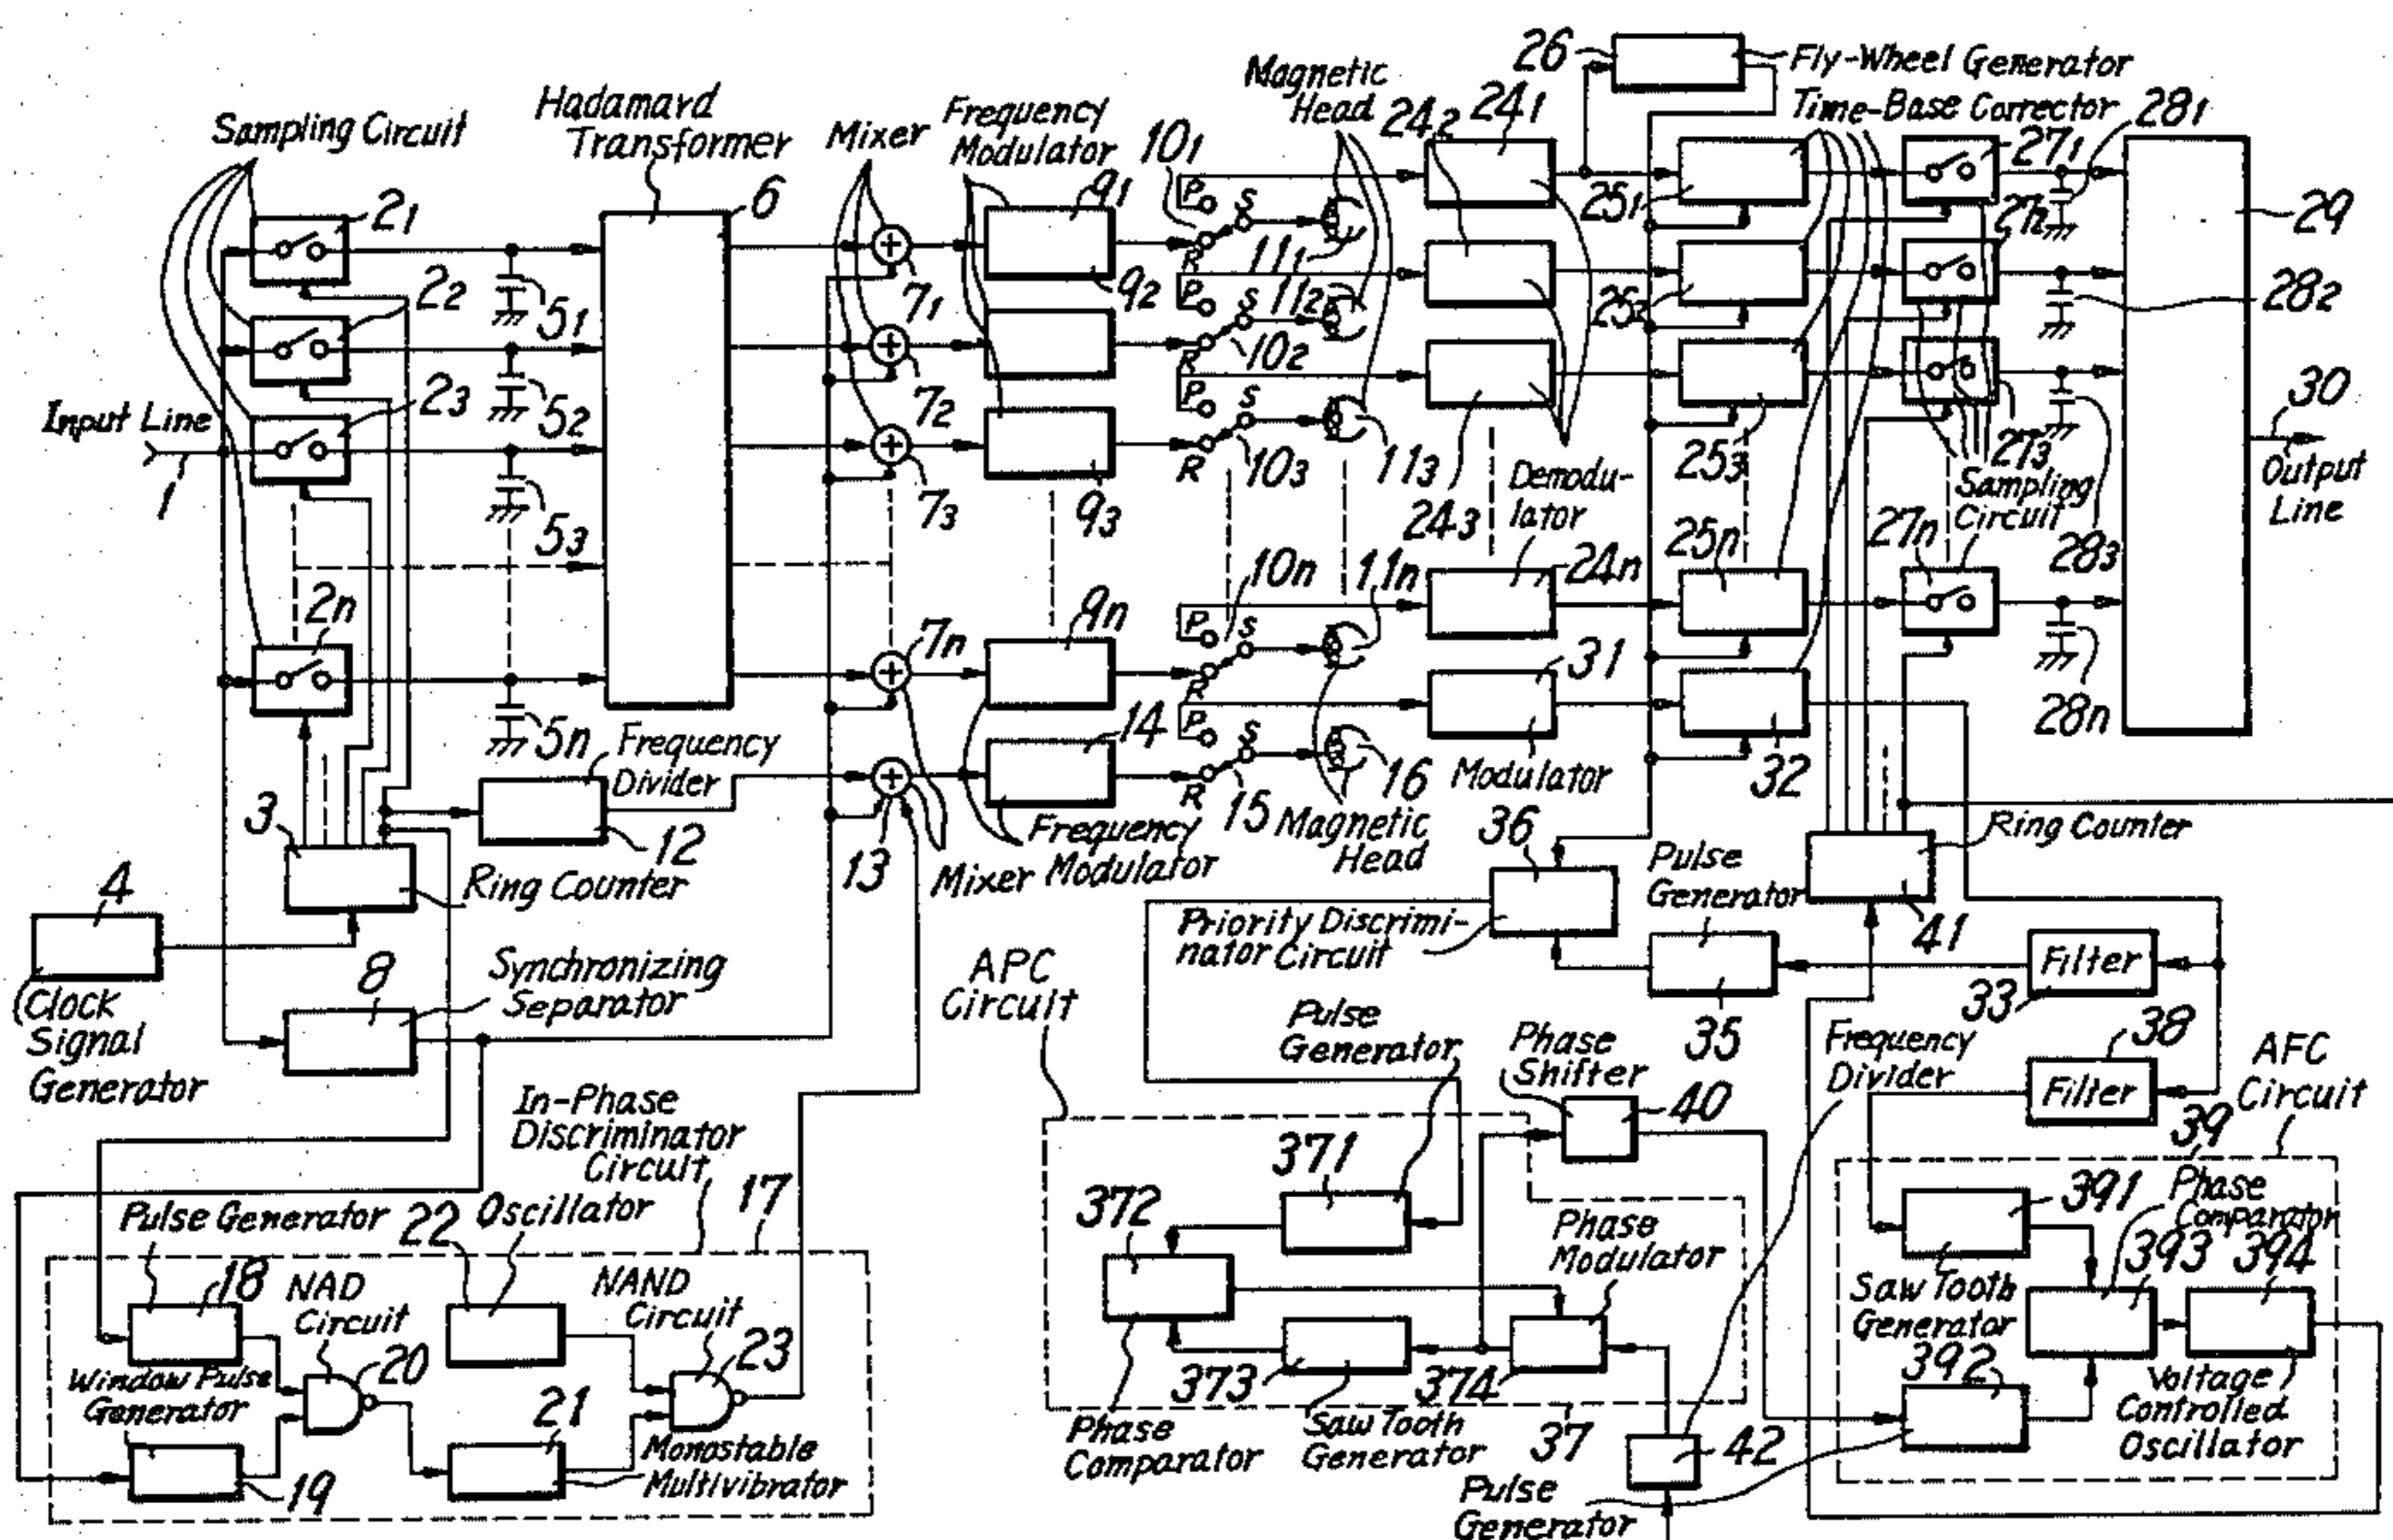 Sampling Circuit
Hadamard
Transformer
Mixer
Frequency
Modulator
Magnetic
Head
26
Fly-Wheel Generator
Time-Base Corrector
21
22
23
2n
6
71
72
73
7n
91
92
93
9n
101
102
103
10n
111
112
113
11n
P
S
R
P
S
R
P
S
R
P
S
R
P
S
R
241
242
243
24n
251
252
253
25n
271
272
273
27n
281
282
283
28n
29
30
Output
Line
Input Line
1
51
52
53
5n
Demodu-
lator
Sampling
Circuit
31
Modulator
32
14
15
16
Magnetic
Head
Frequency
Divider
12
13
Mixer
Frequency
Modulator
3
Ring Counter
4
Clock
Signal
Generator
8
Synchronizing
Separator
36
Priority Discrimi-
nator Circuit
Pulse
Generator
35
Ring Counter
41
Filter
33
Filter
38
Frequency
Divider
AFC
Circuit
39
APC
Circuit
Pulse
Generator
Phase
Shifter
40
In-Phase
Discriminator
Circuit
17
Pulse Generator
22
Oscillator
18
NAD
Circuit
NAND
Circuit
20
23
Window Pulse
Generator
19
21
Monostable
Multivibrator
371
372
Phase
Modulator
373
374
Phase
Comparator
Saw Tooth
Generator
37
42
Pulse
Generator
391
Phase
Comparator
393
394
Saw Tooth
Generator
392
Voltage
Controlled
Oscillator